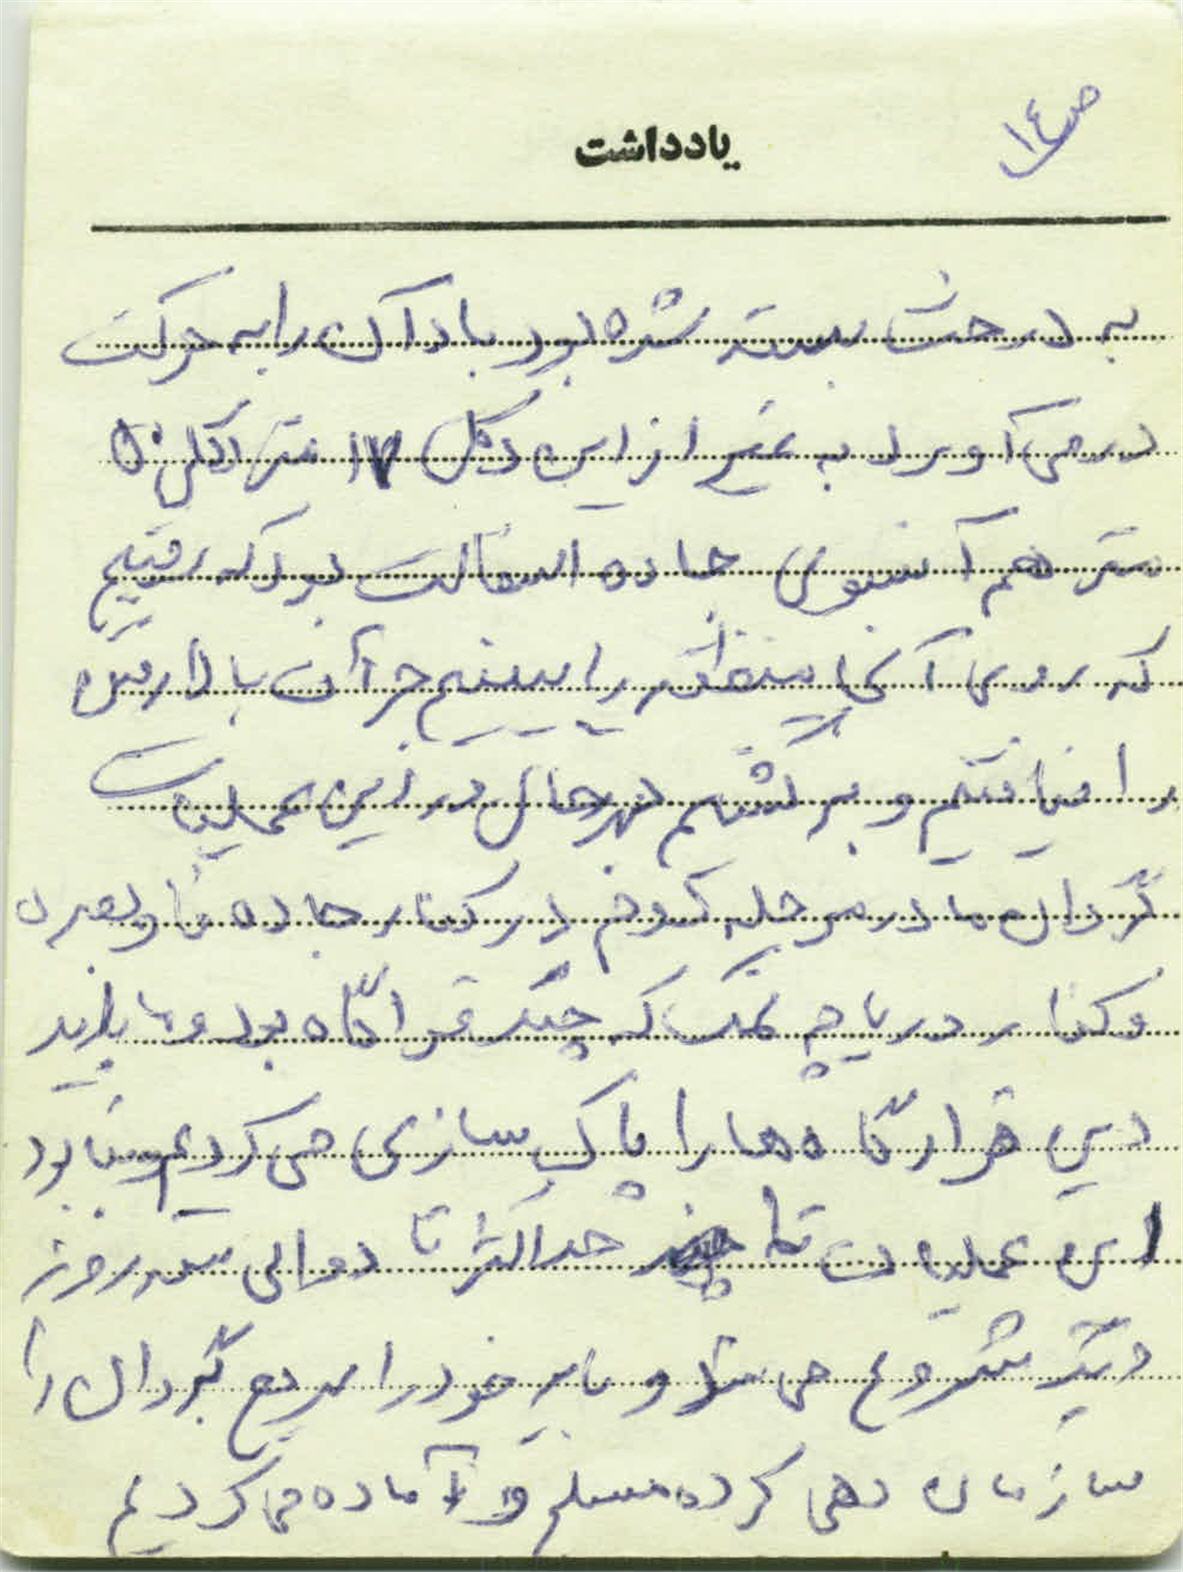 ص ١٤
یادداشت
به درخت بسته شده بود باد آن را به حرکت
در می آورد به غیر از این دکل ١٧ متر دکلی ٥٠
متر هم آنسوی جاده اسفالت بود که رفتیم
که روی آنجا منطقه را ببینیم جرآت بالا رفتن
را نیافتیم و برگشتیم بهرحال در این عملیات
گردان ما در مرحله دوم در کنار جاده فاو بصره
و کنار دریاچه نمک که چند قرارگاه بود و ما باید
این قرارگاه ها را پاک سازی می کردیم و بنا بود
این عملیات تا حداکثر تا دو الی سه روز
دیگر شروع می شد و باید خود را سریع گردان را
سازمان دهی کرده مسلح و آماده می کردیم